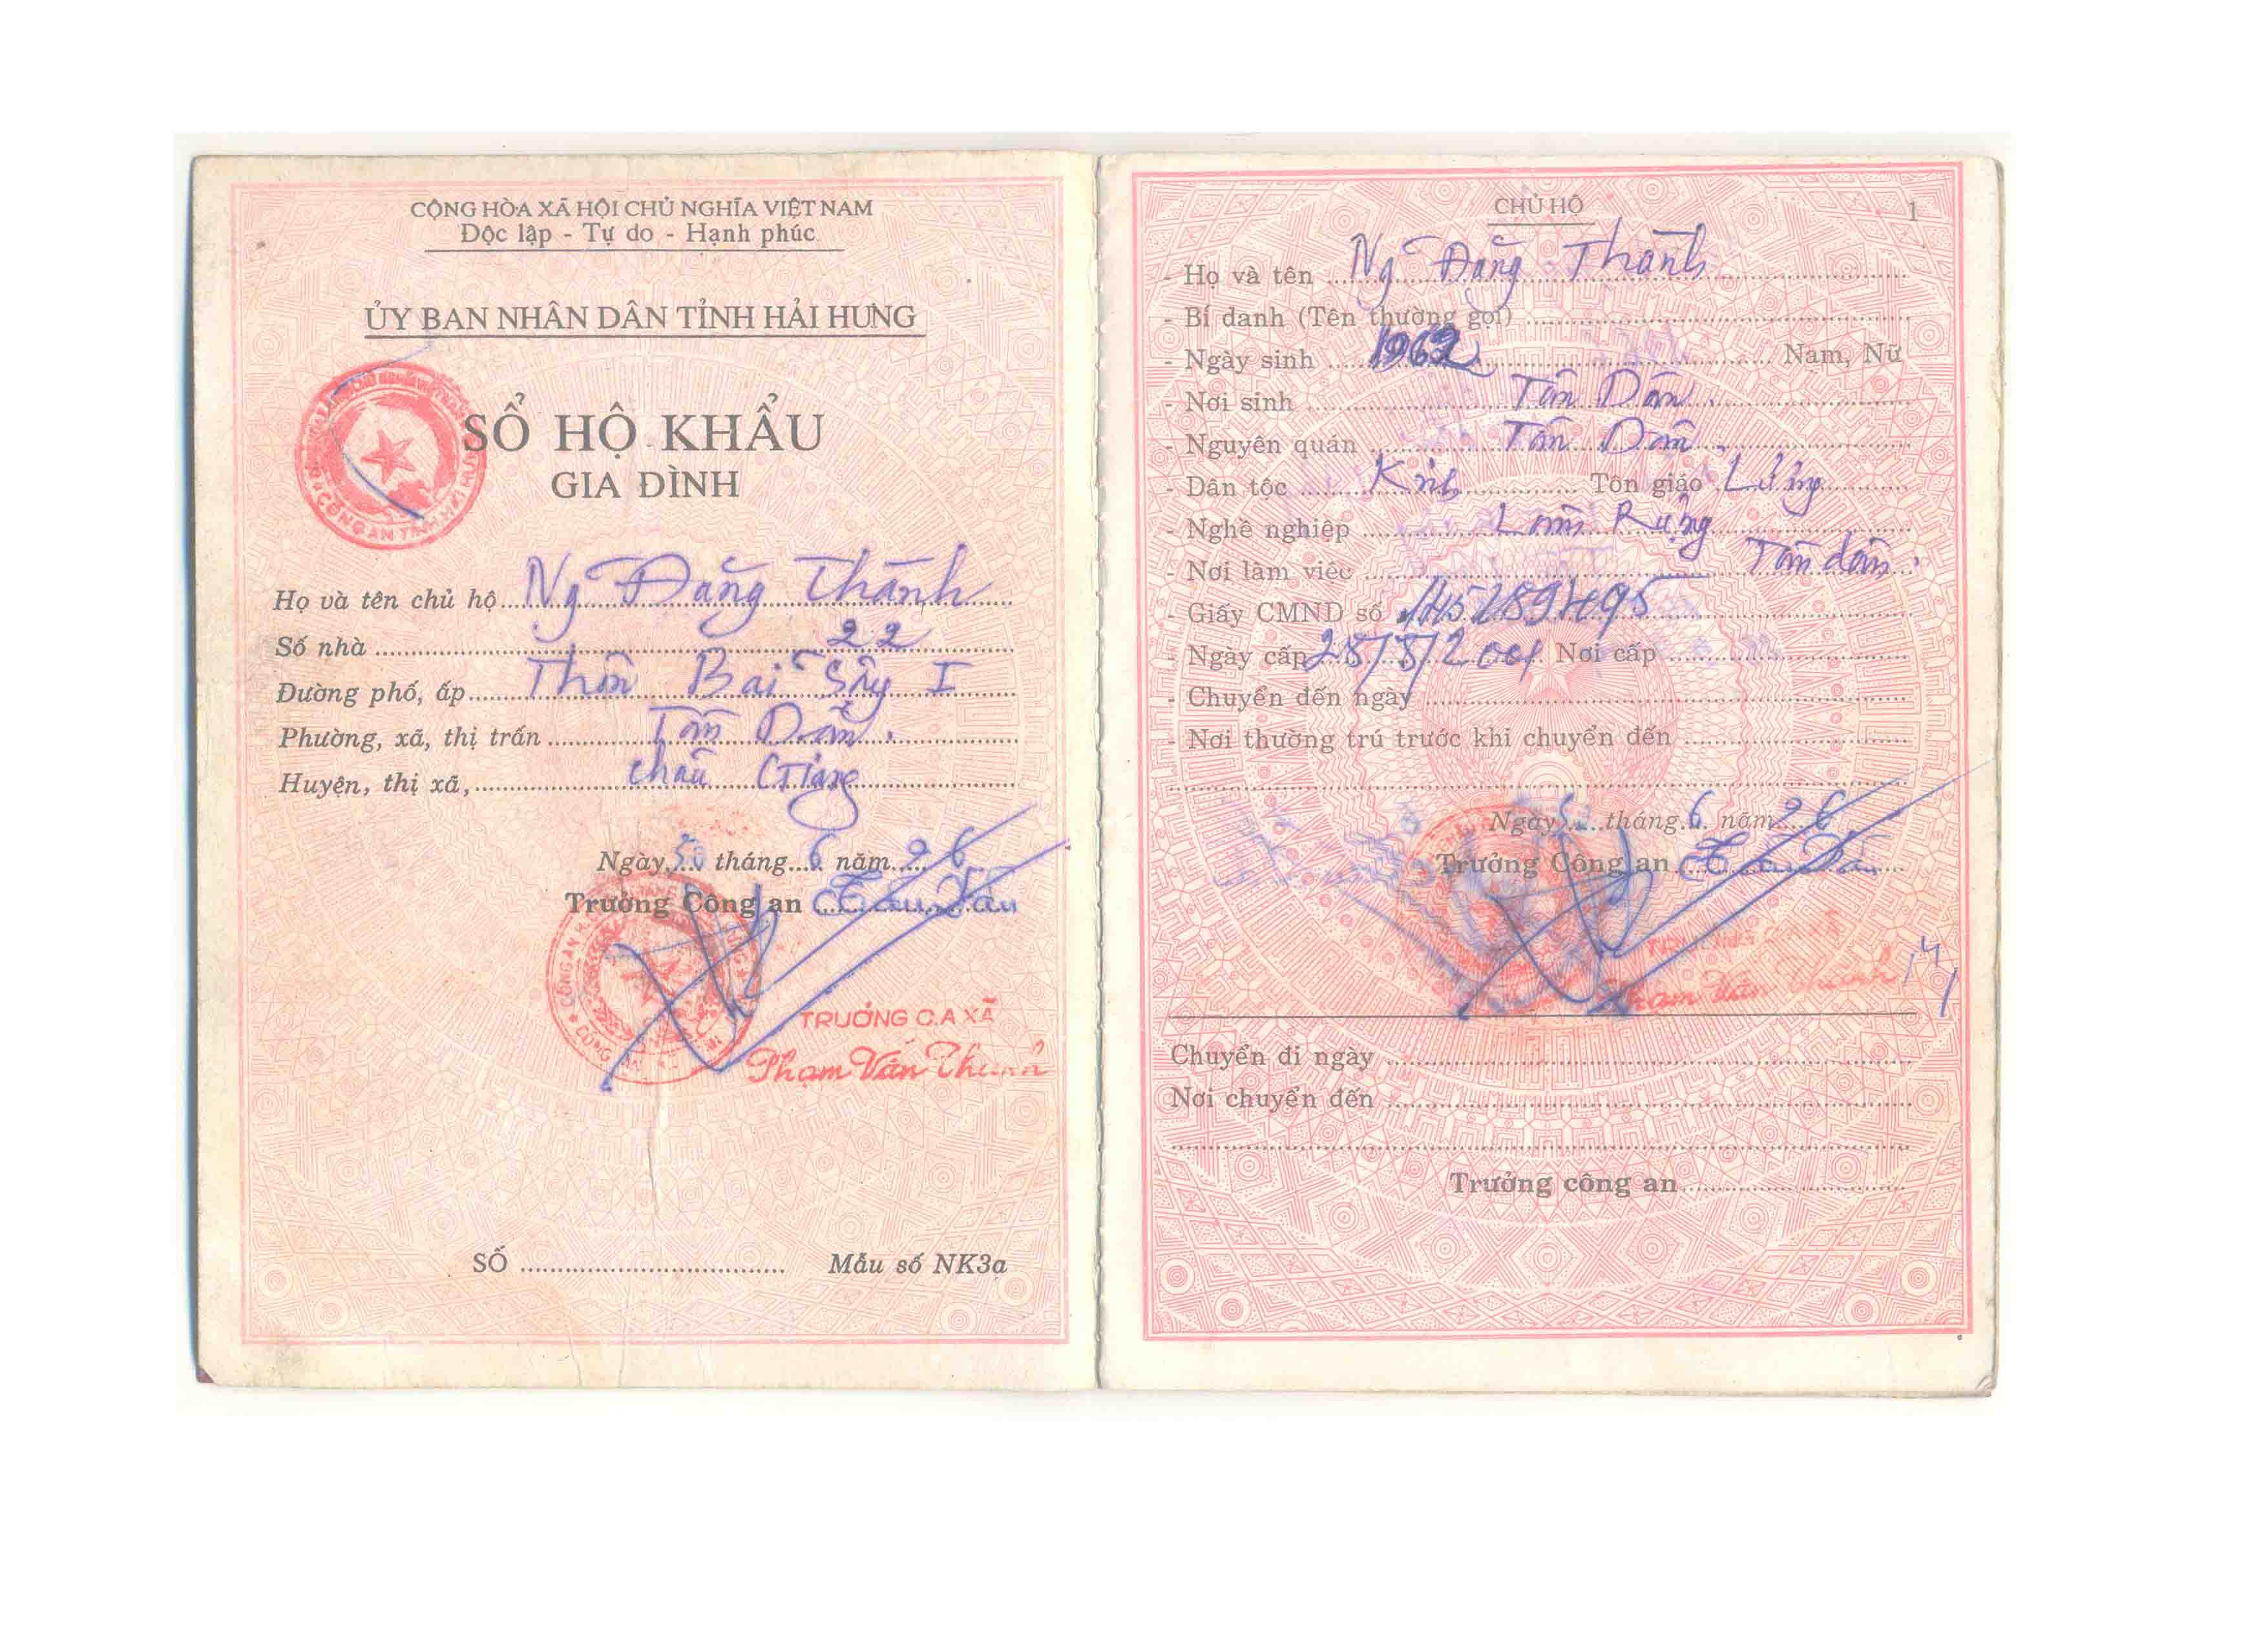 CỘNG HÒA XÃ HỘI CHỦ NGHĨA VIỆT NAM
Độc lập - Tự do - Hạnh phúc
ỦY BAN NHÂN DÂN TỈNH HẢI HƯNG
SỔ HỘ KHẨU
GIA ĐÌNH
Họ và tên chủ hộ Ng Đăng Thành
Số nhà 22
Đường phố, ấp Thôn Bãi Sậy I
Phường, xã, thị trấn Tân Dân.
Huyện, thị xã, Châu Giang
Ngày tháng 6 năm 96
Trưởng Công an
TRƯỞNG C.A XÃ
Phạm Văn
SỐ Mẫu số NK3a
CHỦ HỘ 1
- Họ và tên Ng Đăng Thành
- Bí danh (Tên thường gọi)
- Ngày sinh 1962 Nam, Nữ
- Nơi sinh Tân Dân.
- Nguyên quán Tân Dân.
- Dân tộc Kinh Tôn giáo Lương
- Nghề nghiệp Làm Ruộng
- Nơi làm việc Tân dân.
- Giấy CMND số
- Ngày cấp 28/8/2001 Nơi cấp
- Chuyển đến ngày
- Nơi thường trú trước khi chuyển đến
Ngày tháng 6 năm 96
Trưởng Công an
Phạm Văn
Chuyển đi ngày
Nơi chuyển đến
Trưởng công an